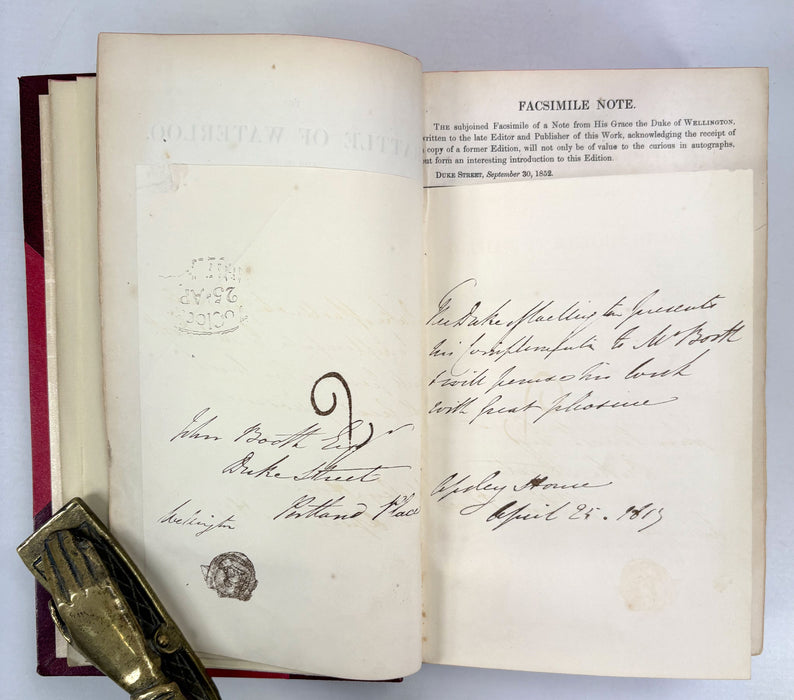 ATTLE OF WATERLOO.
8 o'Clock
25·AP
John Booth Esqr
Duke Street
Portland Place
Wellington
FACSIMILE NOTE.
The subjoined Facsimile of a Note from His Grace the Duke of Wellington,
written to the late Editor and Publisher of this Work, acknowledging the receipt of
a copy of a former Edition, will not only be of value to the curious in autographs,
but form an interesting introduction to this Edition.
Duke Street, September 30, 1852.
The Duke of Wellington presents
his Compliments to Mr Booth
& will peruse his work
with great pleasure
Apsley House
April 25. 1817